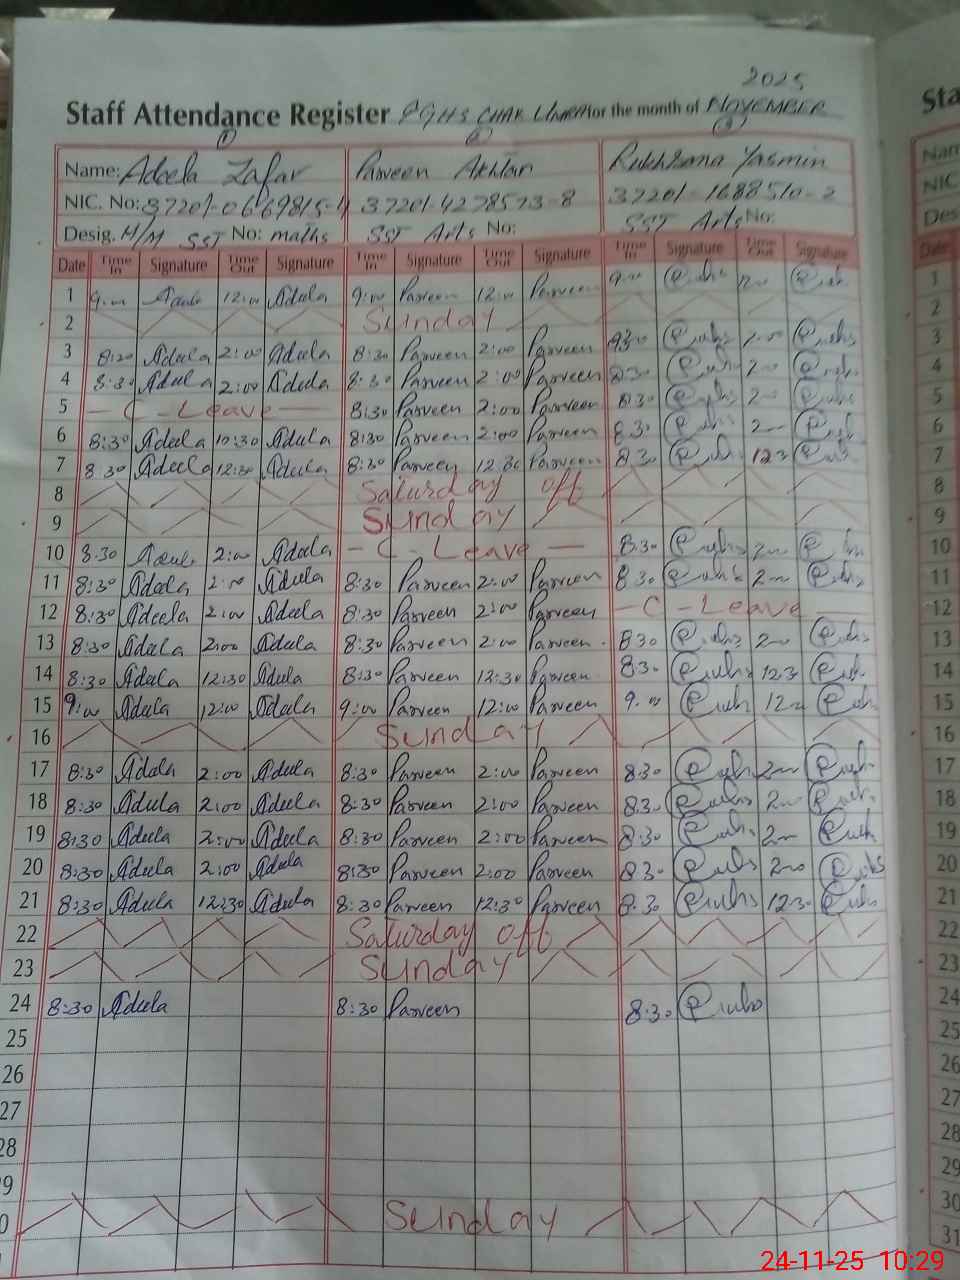 2025
Staff Attendance Register GGHS CHAK UMRA for the month of NOVEMBER
① ② ③
Name: Adeela Zafar Parveen Akhtar Rukhsana Yasmin
NIC. No: 37201-0669815-4 37201-4278573-8 37201-1688510-2
Desig. H/M SST No: maths SST Arts No: SST Arts No:
Date Time In Signature Time Out Signature Time In Signature Time Out Signature Time In Signature Time Out Signature
1 9:00 Adeela 12:00 Adeela 9:00 Parveen 12:00 Parveen 9:00
2 Sunday
3 8:30 Adeela 2:00 Adeela 8:30 Parveen 2:00 Parveen 8:30 2:00
4 8:30 Adeela 2:00 Adeela 8:30 Parveen 2:00 Parveen 8:30 2:00
5 - C - Leave - 8:30 Parveen 2:00 Parveen 8:30 2:00
6 8:30 Adeela 10:30 Adeela 8:30 Parveen 2:00 Parveen 8:30 2:00
7 8:30 Adeela 12:30 Adeela 8:30 Parveen 12:30 Parveen 8:30 12:3
8 Saturday off
9 Sunday
10 8:30 Adeela 2:00 Adeela - C - Leave - 8:30 2:00
11 8:30 Adeela 2:00 Adeela 8:30 Parveen 2:00 Parveen 8:30 2:00
12 8:30 Adeela 2:00 Adeela 8:30 Parveen 2:00 Parveen - C - Leave -
13 8:30 Adeela 2:00 Adeela 8:30 Parveen 2:00 Parveen 8:30 2:00
14 8:30 Adeela 12:30 Adeela 8:30 Parveen 12:30 Parveen 8:30 12:3
15 9:00 Adeela 12:00 Adeela 9:00 Parveen 12:00 Parveen 9:00 12:00
16 Sunday
17 8:30 Adeela 2:00 Adeela 8:30 Parveen 2:00 Parveen 8:30 2:00
18 8:30 Adeela 2:00 Adeela 8:30 Parveen 2:00 Parveen 8:30 2:00
19 8:30 Adeela 2:00 Adeela 8:30 Parveen 2:00 Parveen 8:30 2:00
20 8:30 Adeela 2:00 Adeela 8:30 Parveen 2:00 Parveen 8:30 2:00
21 8:30 Adeela 12:30 Adeela 8:30 Parveen 12:30 Parveen 8:30 12:30
22 Saturday off
23 Sunday
24 8:30 Adeela 8:30 Parveen 8:30
25
26
27
28
9
0 Sunday
Sta
Nam
NIC
Des
Date
1
2
3
4
5
6
7
8
9
10
11
12
13
14
15
16
17
18
19
20
21
22
23
24
25
26
27
28
29
30
31
24-11-25 10:29